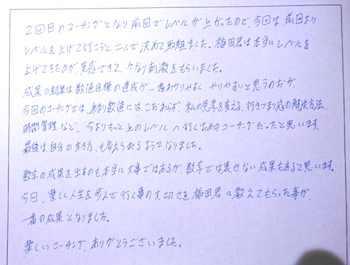 2回目のコーチングとなり前回でレベルが上がったので、今回は前回より
レベルを上げて行こうと二人で決めて取組ました。梅田君は本当にレベルを
上げてきたのが、実感できて、かなり刺激をもらいました。
成果の結果は数値目標の達成が一番わかりやすく、やりやすいと思うのだが、
今回のコーチングでは、あまり数値にはこだわらず、私の思考を変える、行きづまり感の解決方法、
時間管理など、今よりもっと上のレベルへ行くためのコーチングだったと思います。
最後は、自分の生き方も考えられるようになりました。
数字の成果を出すのも本当に大事ではあるが、数字では表せない成果もあると思います。
今回、楽しい人生を歩んで行く事の大切さを梅田君に教えてもらった事が、
一番の成果となりました。
楽しいコーチング、ありがとうございました。